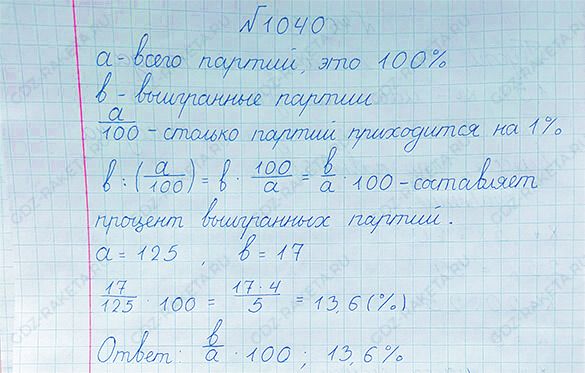 №1040
а - всего партий, это 100%
в - выигранные партии
а/100 - столько партий приходится на 1%
в : (а/100) = в · 100/а = в/а · 100 - составляет
процент выигранных партий.
а = 125 , в = 17
17/125 · 100 = 17·4/5 = 13,6 (%)
Ответ: в/а · 100 ; 13,6%
GDZ-RAKETA.RU